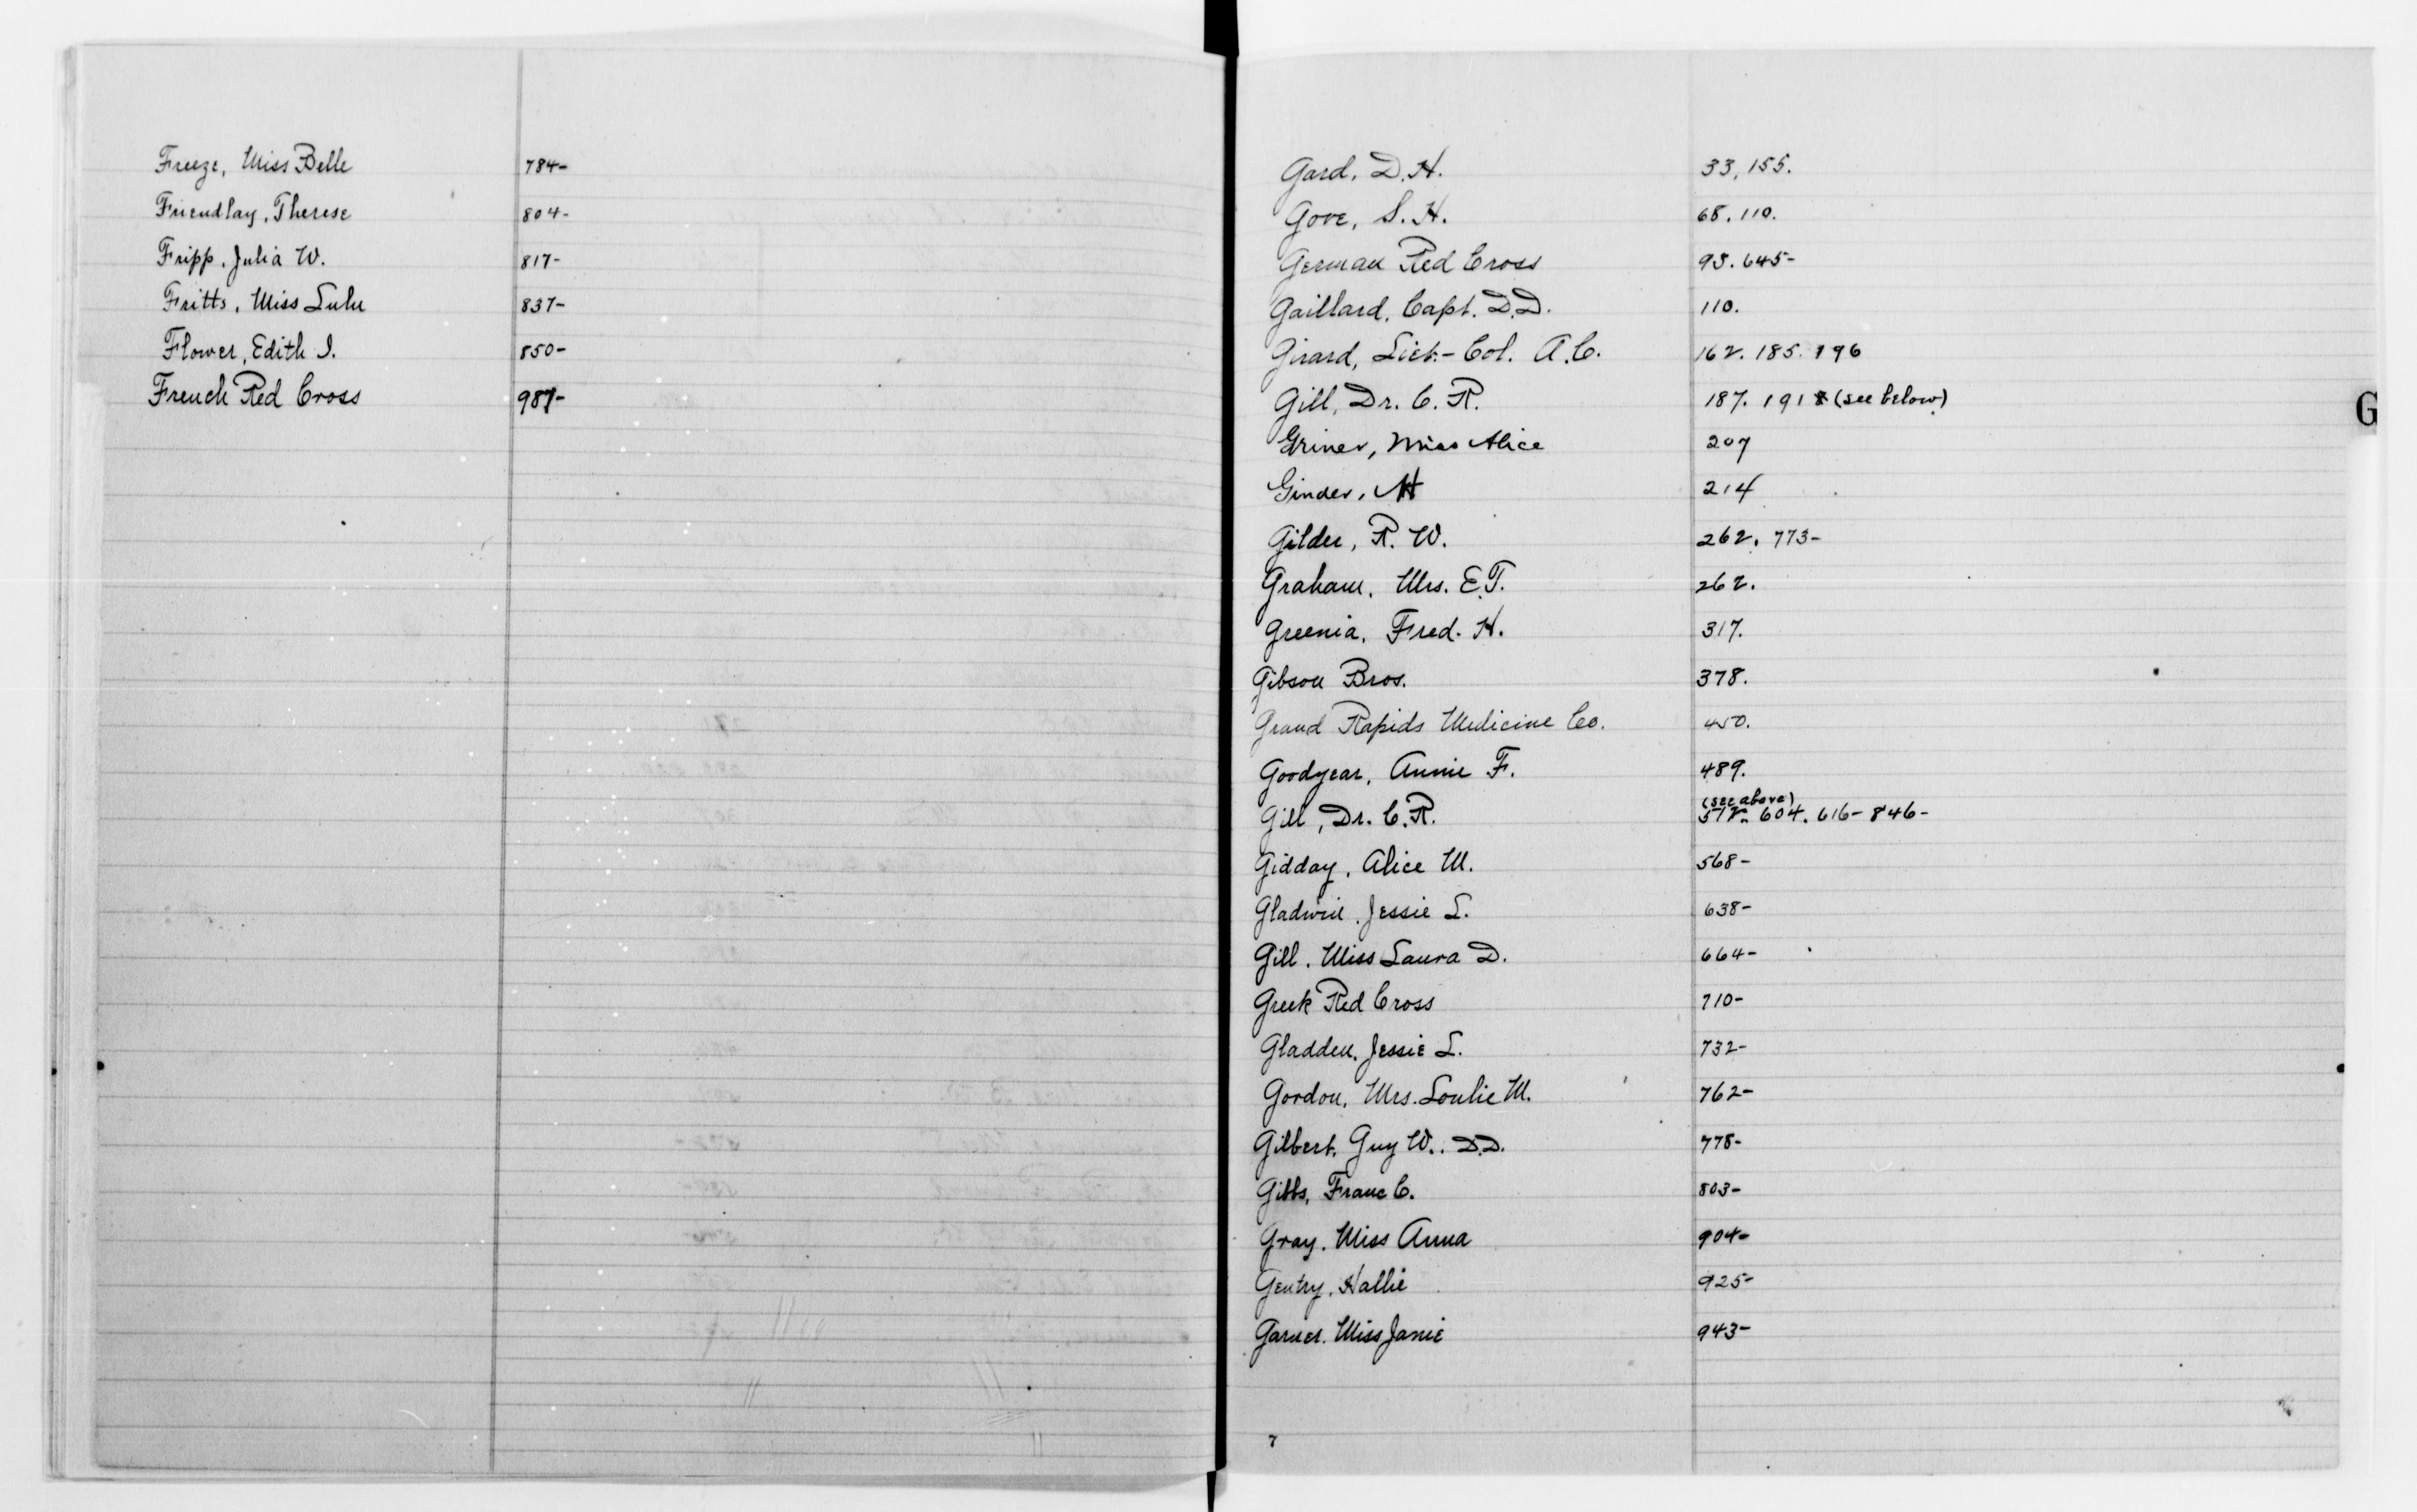 Freeze, Miss Belle 784-
Friendlay, Therese 804-
Fripp, Julia W. 817-
Fritts, Miss Lulu 837-
Flower, Edith I. 850-
French Red Cross 987-
Gard, D. H. 33, 155.
Gove, S. H. 68. 110.
German Red Cross 93. 645-
Gaillard, Capt. D.D. 110.
Girard, Liet.- Col. A.C. 162. 185. 196
Gill, Dr. C. R. 187. 191 (see below)
Griner, Miss Alice 207
Ginder, M 214
Gilder, R. W. 262. 773-
Graham, Mrs. E.T. 262.
Greenia, Fred. H. 317.
Gibson Bros. 378.
Grand Rapids Medicine Co. 450.
Goodyear, Annie F. 489.
(see above)
Gill, Dr. C.R. 512. 604. 616- 846-
Gidday, Alice M. 568-
Gladwin, Jessie L. 638-
Gill, Miss Laura D. 664-
Greek Red Cross 710-
Gladden, Jessie L. 732-
Gordon, Mrs. Loulie M. 762-
Gilbert, Guy W., D.D. 778-
Gibbs, Franc C. 803-
Gray, Miss Anna 904-
Gentry, Hallie 925-
Garner, Miss Janie 943-
G
7